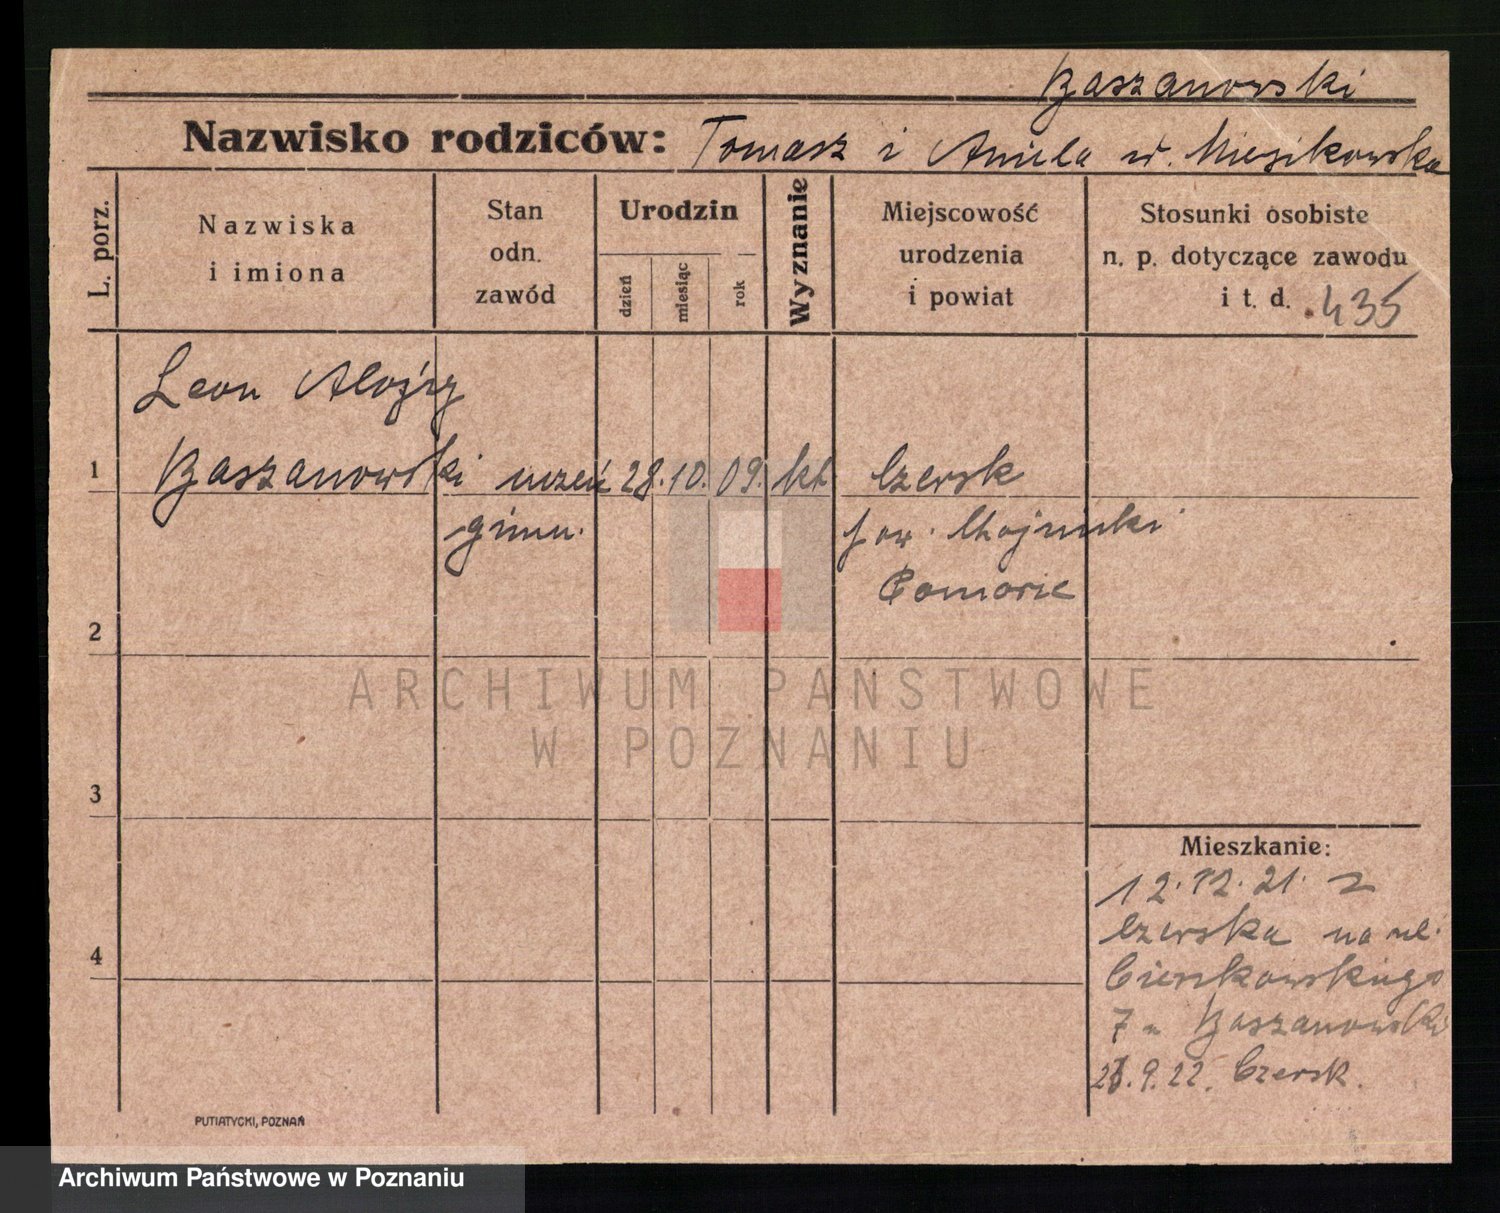 Baszanowski
Nazwisko rodziców: Tomasz i Aniela z d. Miesikowska
L. porz.
Nazwiska
i imiona
Stan
odn.
zawód
Urodzin
dzień
miesiąc
rok
Wyznanie
Miejscowość
urodzenia
i powiat
Stosunki osobiste
n. p. dotyczące zawodu
i t. d. 435
Leon Alojzy
1 Baszanowski uczeń 28. 10. 09. kt. Czersk
gimn. pow. Chojnicki
Pomorze
2
ARCHIWUM PAŃSTWOWE
W POZNANIU
3
Mieszkanie:
12.12.21. z
Czerska na ul.
4 Cieszkowskiego
7 u Baszanowski
9.22. Czersk.
PUTIATYCKI, POZNAŃ
Archiwum Państwowe w Poznaniu